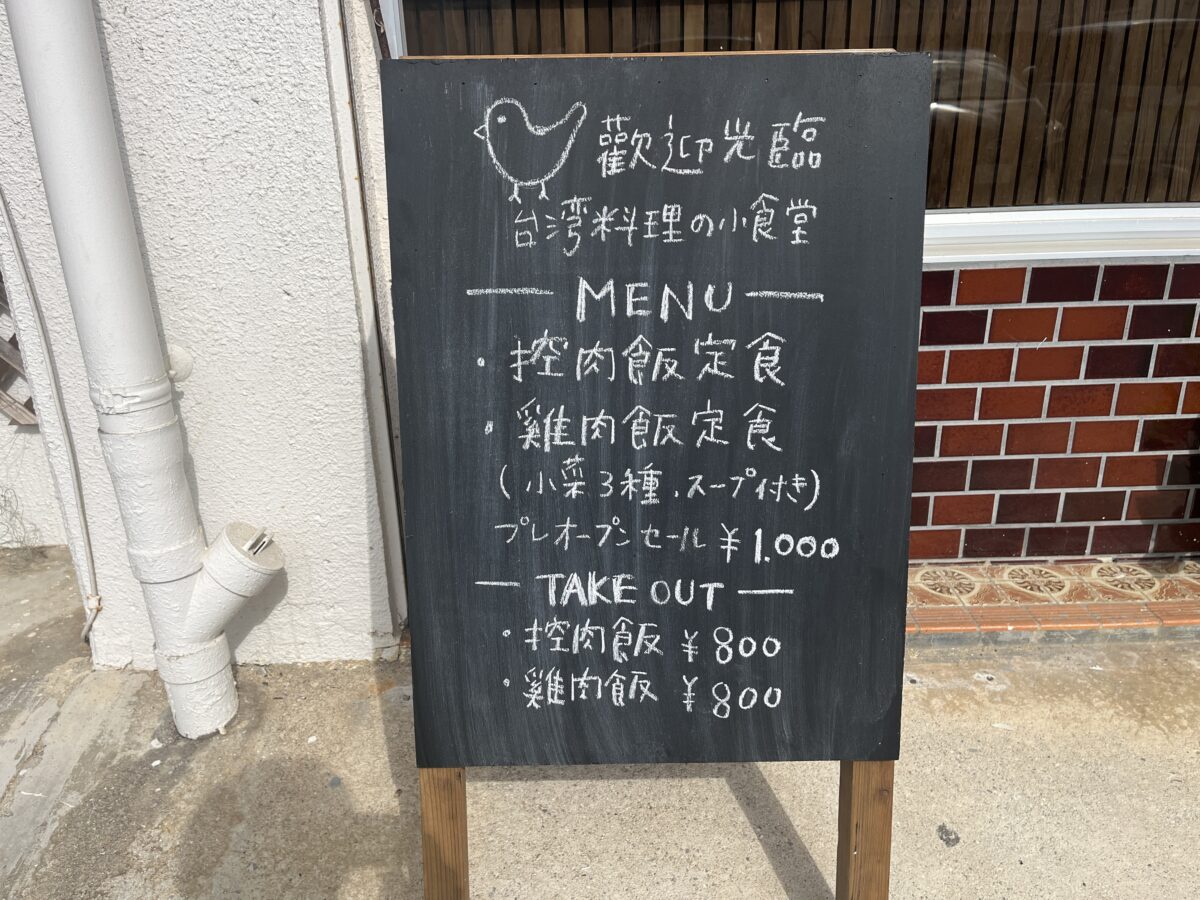 歡迎光臨
台湾料理の小食堂
— MENU —
・控肉飯定食
・雞肉飯定食
(小菜3種、スープ付き)
プレオープンセール ¥1.000
— TAKE OUT —
・控肉飯 ¥800
・雞肉飯 ¥800